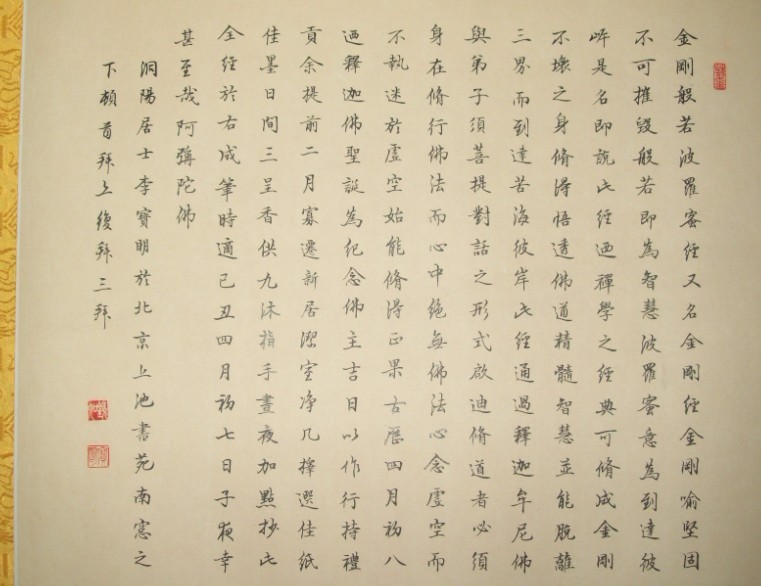 金剛般若波羅蜜經又名金剛經金剛喻堅固
不可摧毀般若即為智慧波羅蜜意為到達彼
岸是名即說此經迺禪學之經典可脩成金剛
不壞之身脩得悟透佛道精髓智慧並能脫離
三界而到達苦海彼岸此經通過釋迦牟尼佛
與弟子須菩提對話之形式啟迪脩道者必須
身在脩行佛法而心中絕無佛法心念虛空而
不執迷於虛空始能脩得正果古歷四月初八
迺釋迦佛聖誕為紀念佛主吉日以作行持禮
貢余提前二月寡遷新居潔室净几擇選佳紙
佳墨日間三呈香供九沐指手晝夜加點抄此
全經於右成筆時適己丑四月初七日子夜幸
甚至哉阿彌陀佛
洞陽居士李寶明於北京上池書苑南窓之
下頓首拜上復拜三拜